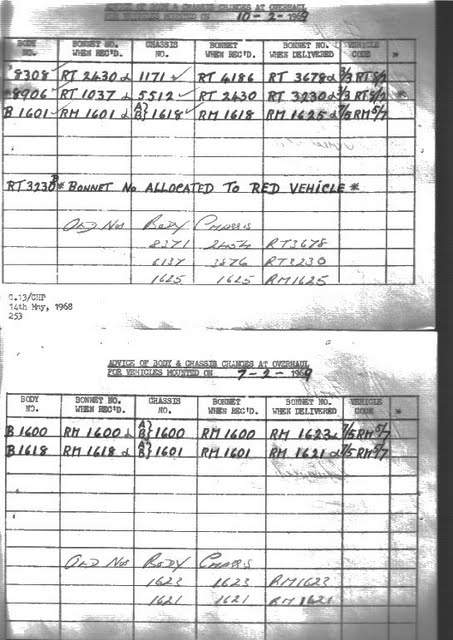 ADVICE OF BODY & CHASSIS CHANGES AT OVERHAUL
FOR VEHICLES MOUNTED ON 10-2-1969
BODY NO. BONNET NO. WHEN REC'D. CHASSIS NO. BONNET WHEN REC'D. BONNET NO. WHEN DELIVERED VEHICLE CODE
*8308 RT 2430 1171 RT 4186 RT 3678 2/3 RT 8/2
*8906 RT 1037 5512 RT 2430 RT 3230 3/3 RT 8/2 *
B 1601 RM 1601 A} B} 1618 RM 1618 RM 1625 7/5 RM 5/7
RT3230 * BONNET NO ALLOCATED TO RED VEHICLE *
OLD NOS BODY CHASSIS
8371 2454 RT3678
6137 3876 RT3230
1625 1625 RM1625
C.13/CHP
14th May, 1968
253
ADVICE OF BODY & CHASSIS CHANGES AT OVERHAUL
FOR VEHICLES MOUNTED ON 7-2-1969
BODY NO. BONNET NO. WHEN REC'D. CHASSIS NO. BONNET WHEN REC'D. BONNET NO. WHEN DELIVERED VEHICLE CODE
B 1600 RM 1600 A} B} 1600 RM 1600 RM 1623 7/5 RM 5/7
B 1618 RM 1618 A} B} 1601 RM 1601 RM 1621 7/5 RM 5/7
OLD NOS BODY CHASSIS
1623 1623 RM1623
1621 1621 RM1621